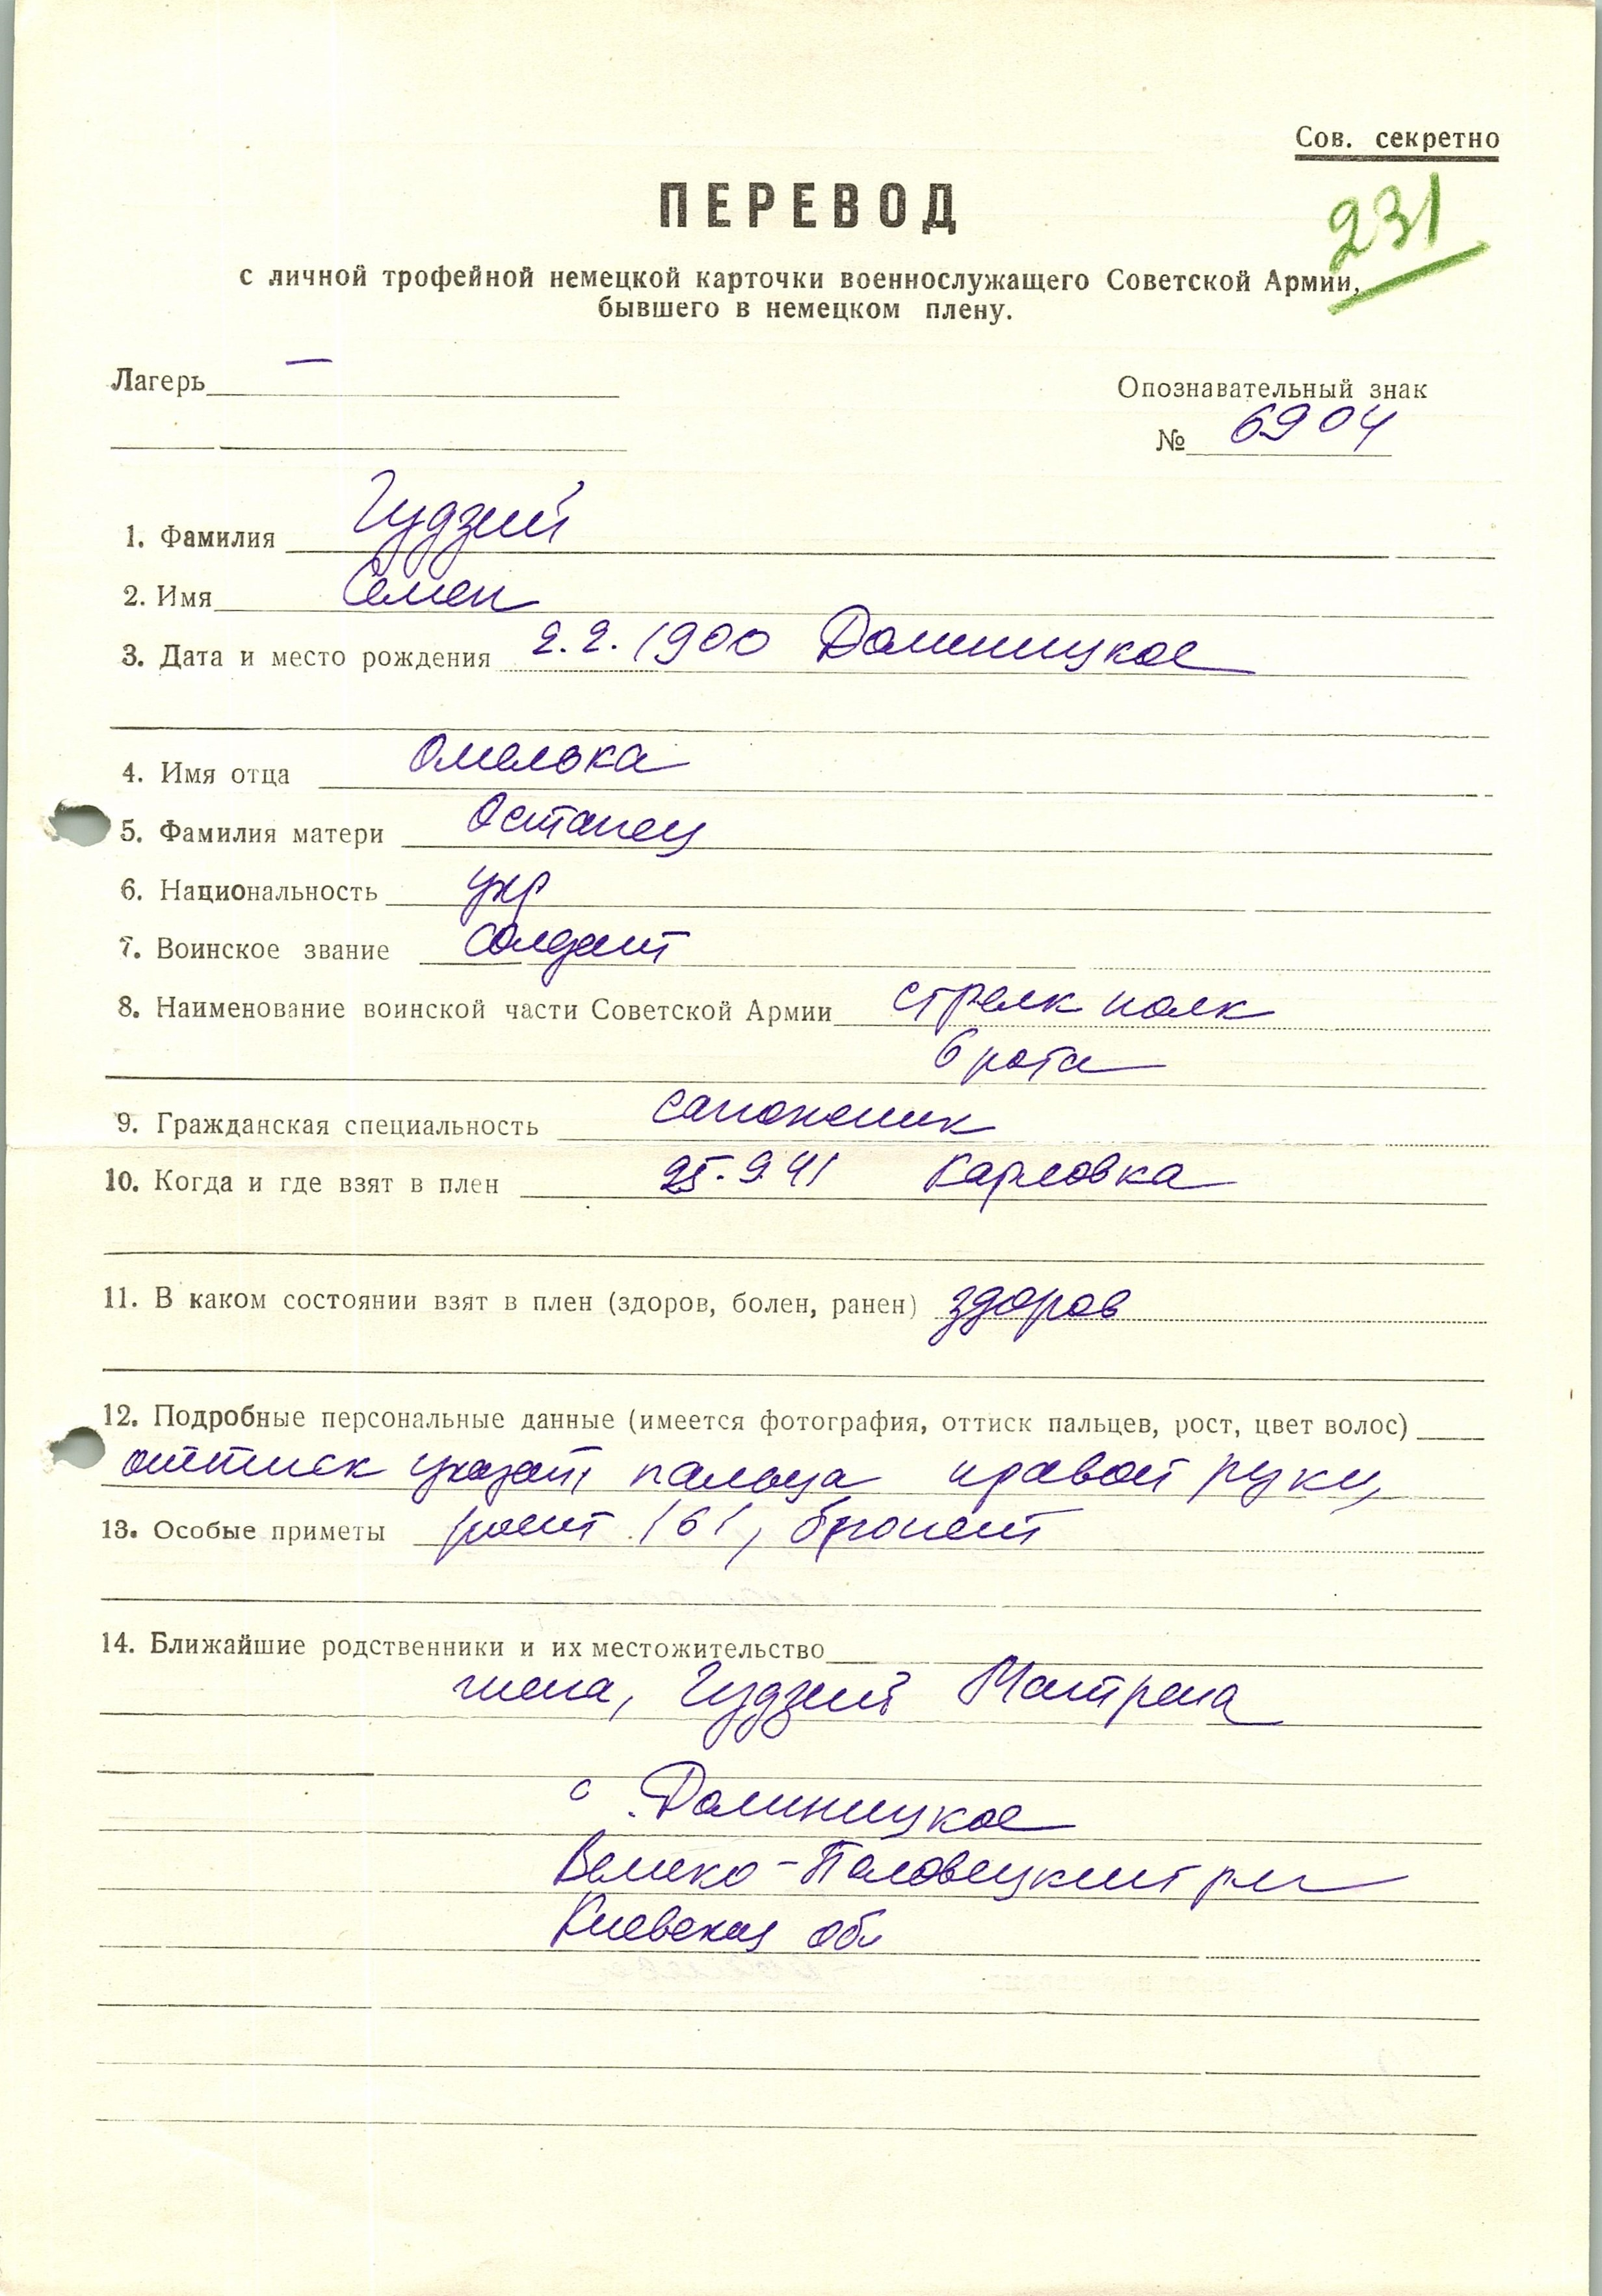 Сов. секретно
ПЕРЕВОД
231
с личной трофейной немецкой карточки военнослужащего Советской Армии,
бывшего в немецком плену.
Лагерь —
Опознавательный знак
№ 6904
1. Фамилия Гудзий
2. Имя Семен
3. Дата и место рождения 2.2.1900 Долиницкое
4. Имя отца Омелька
5. Фамилия матери Остапец
6. Национальность укр
7. Воинское звание солдат
8. Наименование воинской части Советской Армии стрелк полк
6 рота
9. Гражданская специальность сапожник
10. Когда и где взят в плен 25.9.41 Карловка
11. В каком состоянии взят в плен (здоров, болен, ранен) здоров
12. Подробные персональные данные (имеется фотография, оттиск пальцев, рост, цвет волос)
оттиск указат пальца правой руки,
13. Особые приметы рост 161, брюнет
14. Ближайшие родственники и их местожительство
жена, Гудзий Мотрена
с. Долиницкое
Велико-Половецкий р-н
Киевская обл